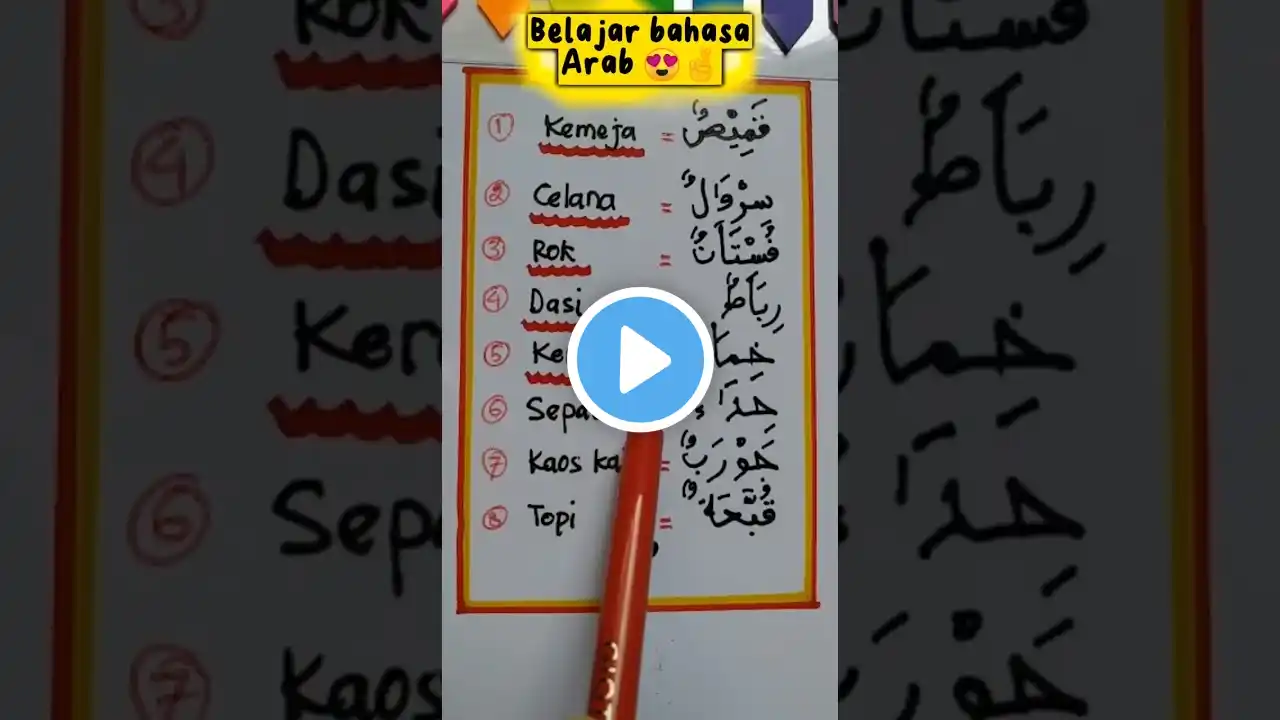 Belajar bahasa
Arab 😍🤞
① Kemeja = قَمِيْصٌ
② Celana = سِرْوَالٌ
③ Rok = فُسْتَانٌ
④ Dasi رِبَاطٌ
⑤
⑥
⑦ Kaos = جَوْرَبٌ
⑧ Topi = قُبَّعَةٌ